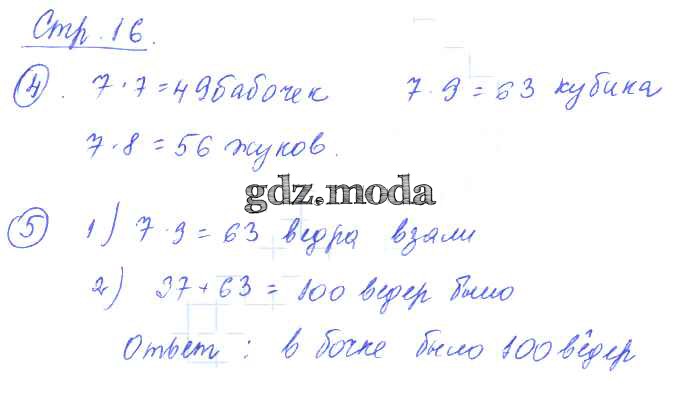 Стр. 16.
4. 7·7=49 бабочек 7·9=63 кубика
7·8=56 жуков.
gdz.moda
5 1) 7·9=63 ведра взяли
2) 37+63=100 ведер было
Ответ: в бочке было 100 вёдер